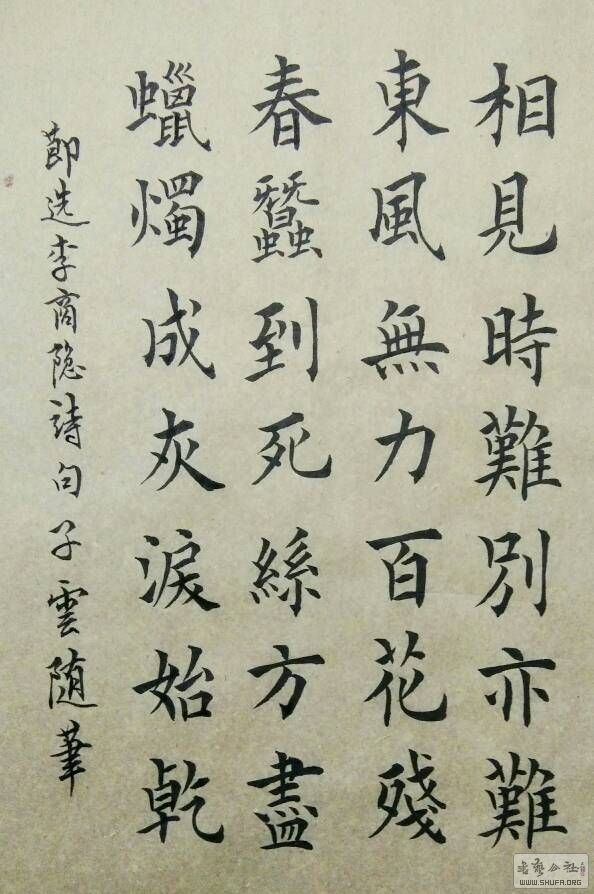 相見時難別亦難
東風無力百花殘
春蠶到死絲方盡
蠟燭成灰淚始乾
節选李商隐詩句子雲随筆
WWW.SHUFA.ORG